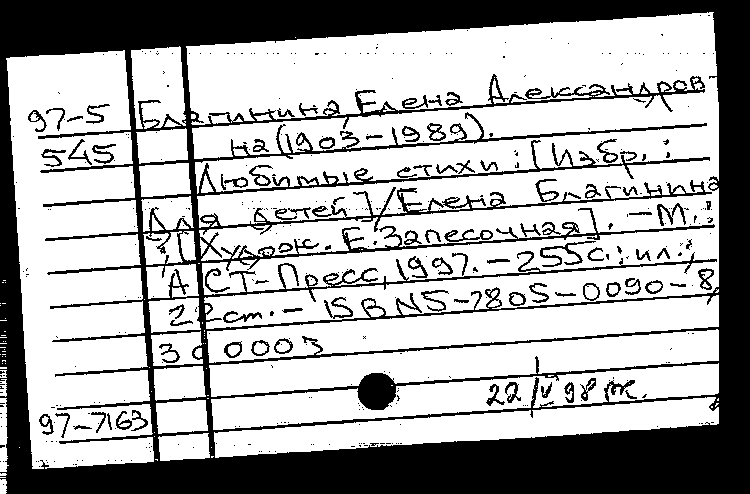 97-5 Благинина, Елена Александров-
545 на (1903-1989).
Любимые стихи: [Избр.:
Для детей] / Елена Благинина
; [Худож. Е. Запесочная]. - М.:
АСТ-Пресс, 1997. - 255 с.: ил.;
22 cm. - ISBN 5-7805-0090-8,
300003
22/V 98
97-7163